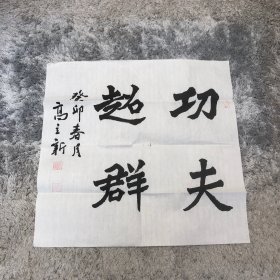 功夫
超群
癸卯春月
高立新